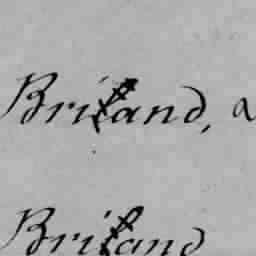 Briland, a
Briland